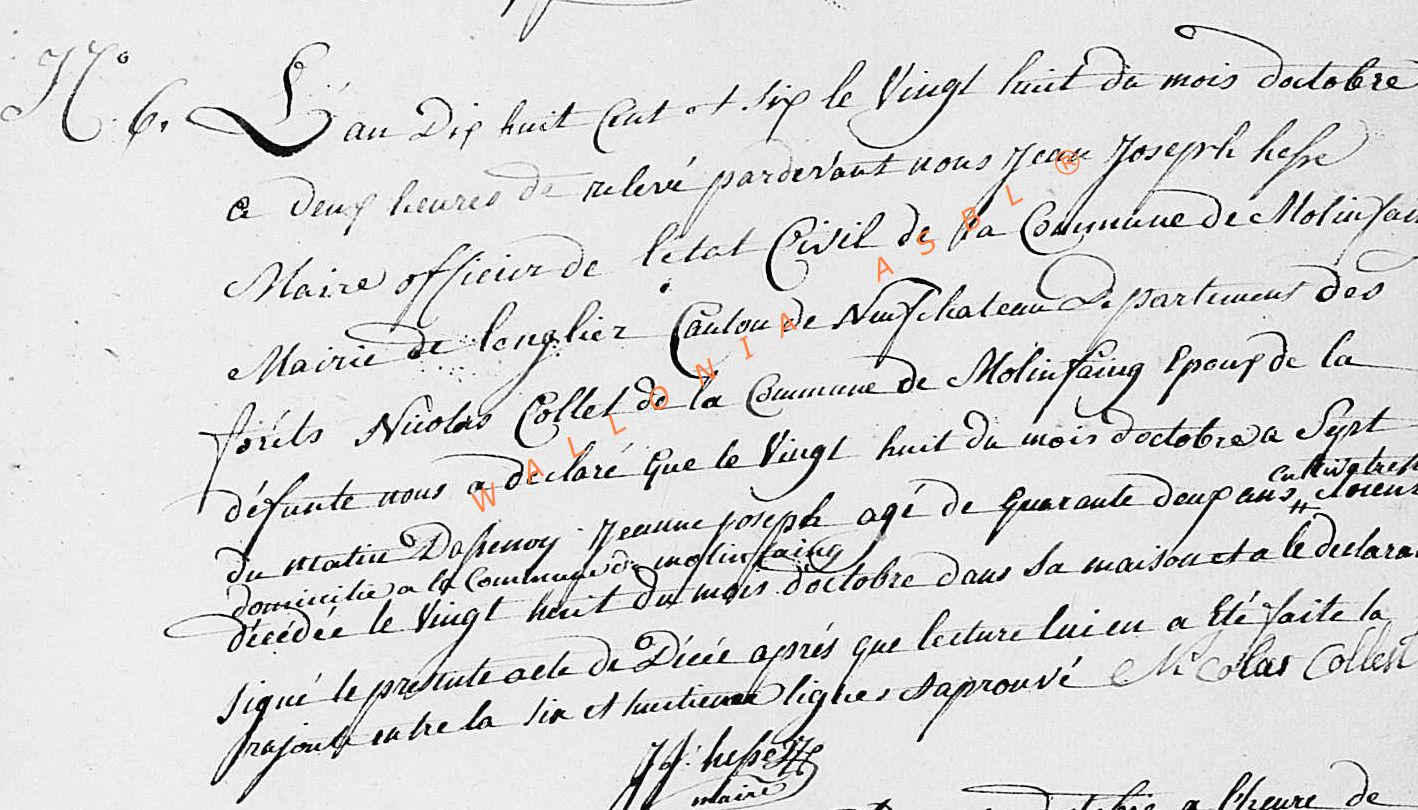 N.o 6. L'an Dix huit Cent et six le Vingt huit du mois doctobre
a deux heures de relevé pardevant nous Jean Joseph hesse
Maire officier de letat Civil de la Commune de Molinfain
Mairie de longlier Canton de Neufchateau Departement des
forêts Nicolas Collet de la Commune de Molinfaing Epoux de la
défunte nous a declaré que le Vingt huit du mois doctobre a Sept
cultivatrice
du matin Dassenoy Jeanne joseph agé de quarante deux ans
domiciliée a la Commune de molinfaing
décédée le Vingt huit du mois doctobre dans sa maison et a le declara
signé le présente acte de Décée après que lecture lui en a Eté faite la
rajoute entre la six et huitieme lignes est aprouvé Nicolas Collest
JJ. hesse
maire
a l'heure de
WALLONIA ASBL ®